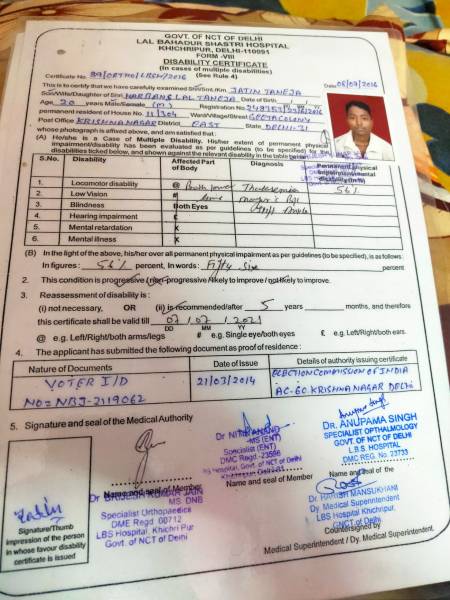 GOVT. OF NCT OF DELHI
LAL BAHADUR SHASTRI HOSPITAL
KHICHRIPUR, DELHI-110091
FORM -VIII
DISABILITY CERTIFICATE
(In cases of multiple disabilities)
(See Rule 4)
Certificate No. 89/ORTHO/LBSH/2016
Date 08/09/2016
This is to certify that we have carefully examined Shri/Smt./Km. JATIN TANEJA
Son/Wife/Daughter of Shri HARBANS LAL TANEJA Date of Birth
Age 20 years Male/Female (M) Registration No.
permanent resident of House No. 11/304 Ward/Village/Street GEETA COLONY
Post Office KRISHNA NAGAR District EAST State DELHI-31
whose photograph is affixed above, and am satisfied that :
(A) He/she is a Case of Multiple Disability. His/her extent of permanent physical
impairment/disability has been evaluated as per guidelines (to be specified) for the
disabilities ticked below, and shown against the relevant disability in the table below
S.No. Disability Affected Part of Body Diagnosis Permanent physical
1. Locomotor disability @ Both lower 56%
2. Low Vision # limb
3. Blindness Both Eyes
4. Hearing impairment £
5. Mental retardation X
6. Mental illness X
(B) In the light of the above, his/her over all permanent physical impairment as per guidelines (to be specified), is as follows :
In figures : 56% percent, In words : Fifty Six percent
2. This condition is progressive / non-progressive /likely to improve / not likely to improve.
3. Reassessment of disability is :
(i) not necessary, OR (ii) is recommended/after 5 years months, and therefore
this certificate shall be valid till 07/07/2021
DD MM YY
@ e.g. Left/Right/both arms/legs # e.g. Single eye/both eyes £ e.g. Left/Right/both ears.
4. The applicant has submitted the following document as proof of residence :
Nature of Documents Date of Issue Details of authority issuing certificate
VOTER I/D 21/03/2014 ELECTION COMMISSION OF INDIA
NO= NBJ-2119062 AC-60 KRISHNA NAGAR DELHI
5. Signature and seal of the Medical Authority
Dr NITIN ANAND
MS (ENT)
Specialist (ENT)
DMC Regd.-23596
Hospital, Govt. of NCT of Delhi
DR. ANUPAMA SINGH
SPECIALIST OPTHALMOLOGY
GOVT. OF NCT OF DELHI
L.B.S. HOSPITAL
DMC REG. NO. 23733
Name and seal of Member
Name and seal of Member
Name and seal of the
KUMAR JAIN
MS DNB
Specialist Orthopaedics
DME Regd. 00712
LBS Hospital, Khichri Pur
Govt. of NCT of Delhi
Dr. HARISH MANSUKHANI
Dy. Medical Superintendent
LBS Hospital Khichripur,
GNCT of Delhi
Countersigned by
Medical Superintendent / Dy. Medical Superintendent
Signature/Thumb
impression of the person
in whose favour disability
certificate is issued